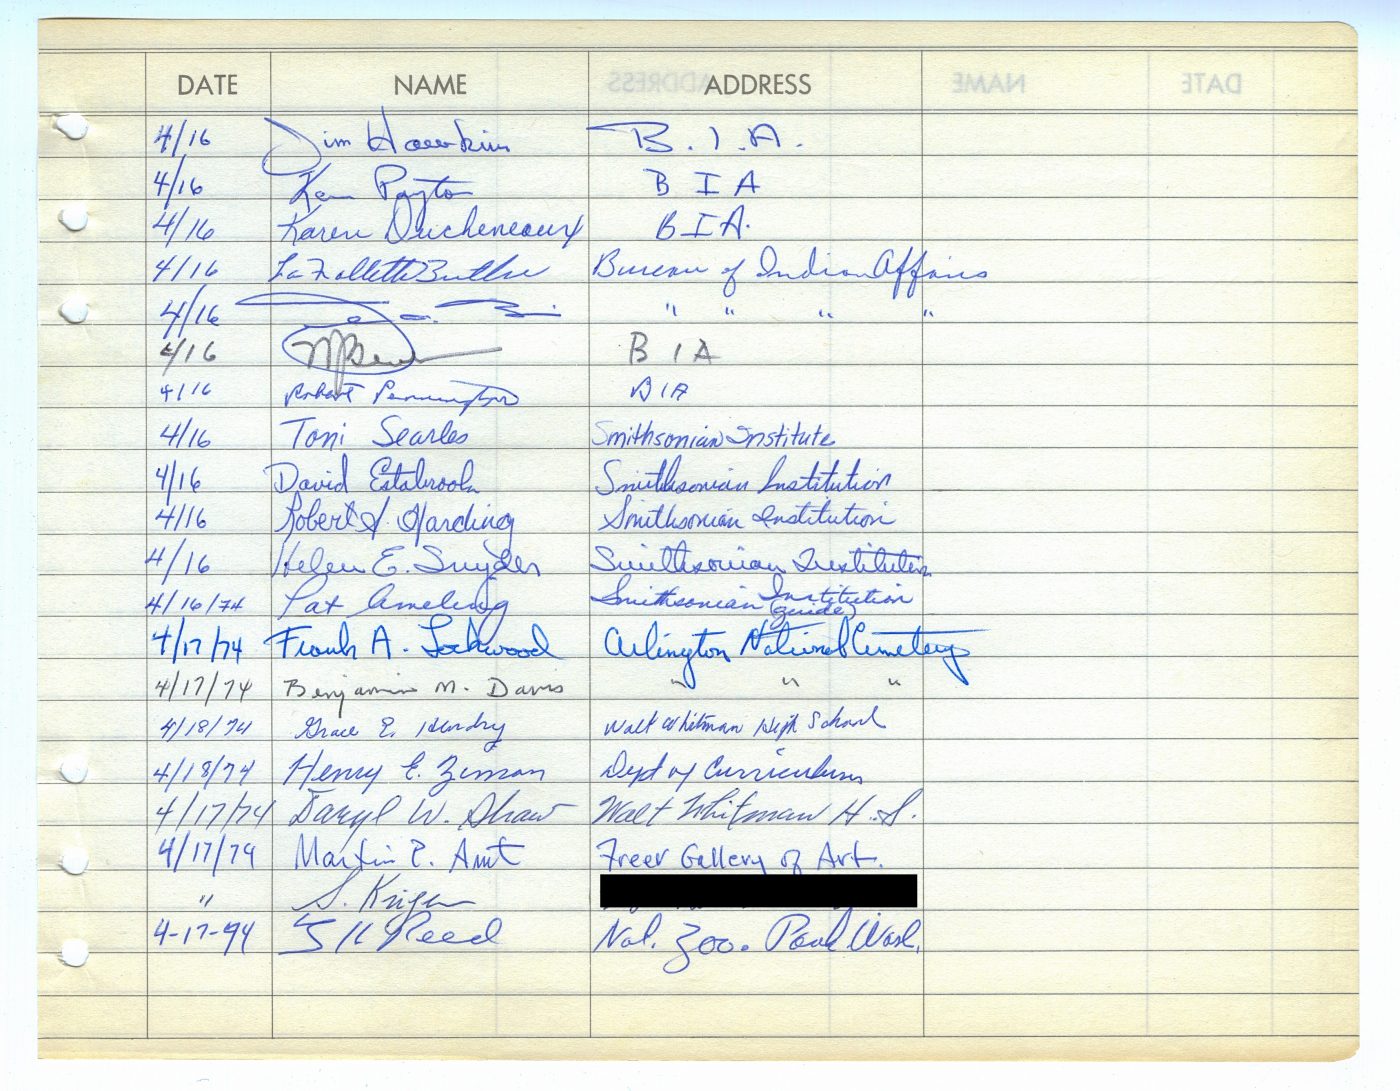 DATE NAME ADDRESS
4/16 Jim Hawkins B.I.A.
4/16 Ken Payton B I A
4/16 Karen Ducheneaux B.I.A.
4/16 LaFollette Butler Bureau of Indian Affairs
4/16 " " " "
4/16 B I A
4/16 Robert Pennington BIA
4/16 Toni Searles Smithsonian Institute
4/16 David Estabrook Smithsonian Institution
4/16 Robert Harding Smithsonian Institution
4/16 Helen E. Snyder Smithsonian Institution
4/16/74 Pat Ameling Smithsonian Institution (guide)
4/17/74 Frank A. Lockwood Arlington National Cemetery
4/17/74 Benjamin M. Davis " " "
4/18/74 Grace E. Hendry Walt Whitman High School
4/18/74 Henry E. Ziman Dept of Curriculum
4/17/74 Daryl W. Shaw Walt Whitman H.S.
4/17/74 Martin P. Amt Freer Gallery of Art.
" S.
4-17-74 Reed Nat. Zoo. Park Wash.